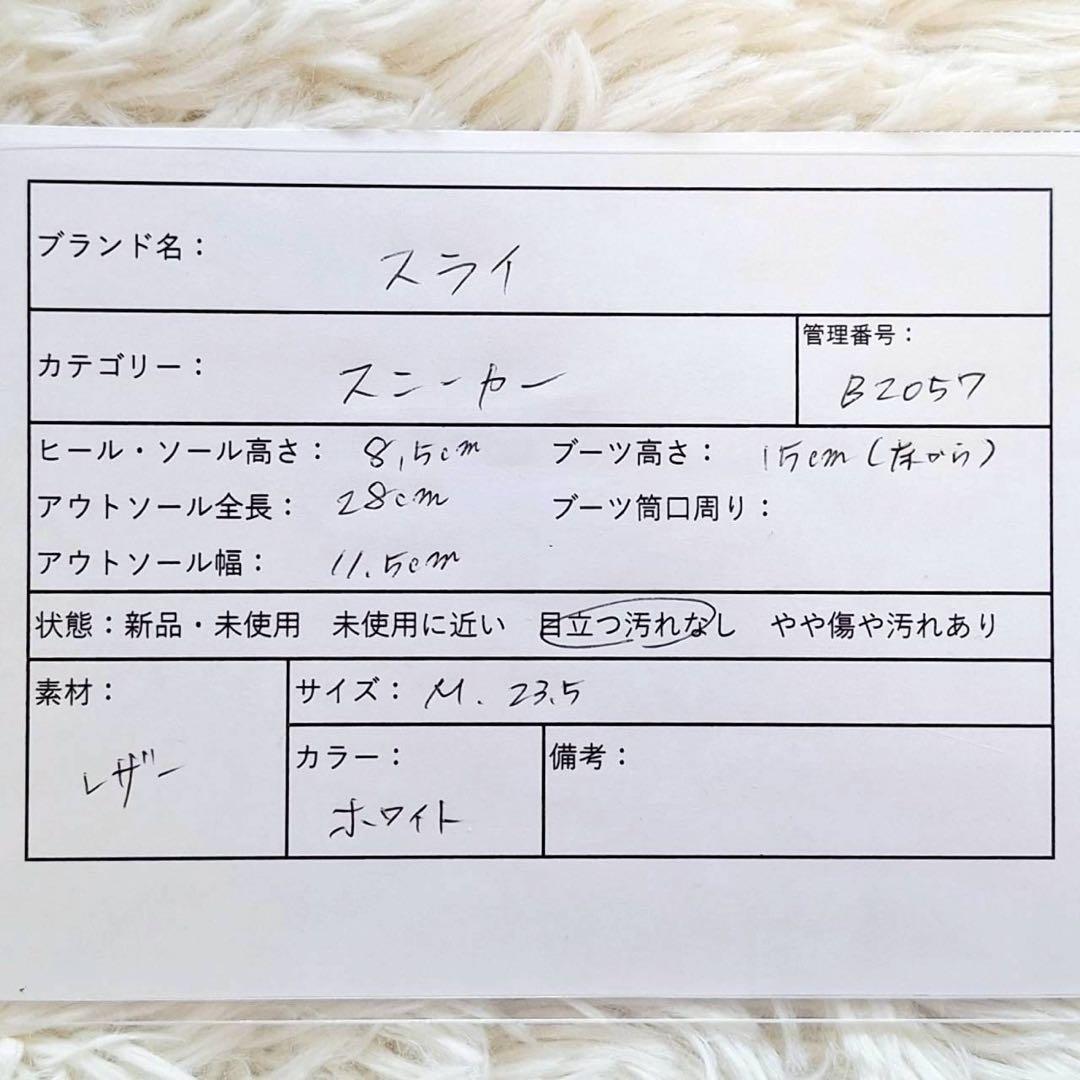 ブランド名： スライ
カテゴリー： スニーカー
管理番号：
B2057
ヒール・ソール高さ： 8,5cm ブーツ高さ： 15cm(床から)
アウトソール全長： 28cm ブーツ筒口周り：
アウトソール幅： 11.5cm
状態：新品・未使用 未使用に近い 目立つ汚れなし やや傷や汚れあり
素材：
レザー
サイズ： M. 23.5
カラー：
ホワイト
備考：